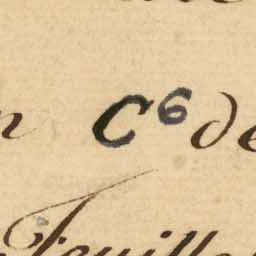 n C⁶ de
Feuille